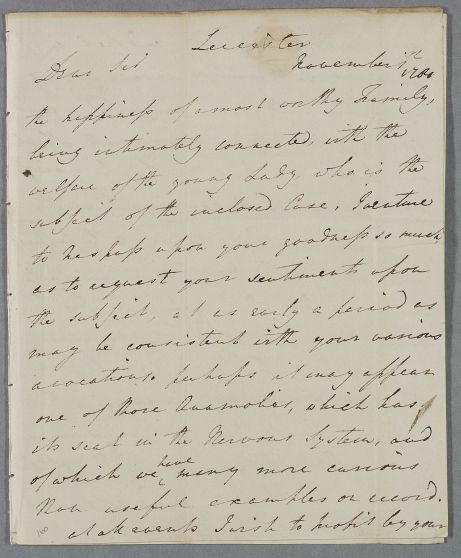 Leicester
Dear Sir
November 1st
the happiness of a most worthy Family,
being intimately connected with the
welfare of the young Lady who is the
subject of the inclosed Case, I venture
to trespass upon your goodness so much
as to request your sentiments upon
the subject, at as early a period as
may be consistent with your various
avocations. perhaps it may appear
one of those Anamolies, which has
its seat in the Nervous System, and
of which we have many more curious
than useful examples on record.
at all events I wish to profit by your